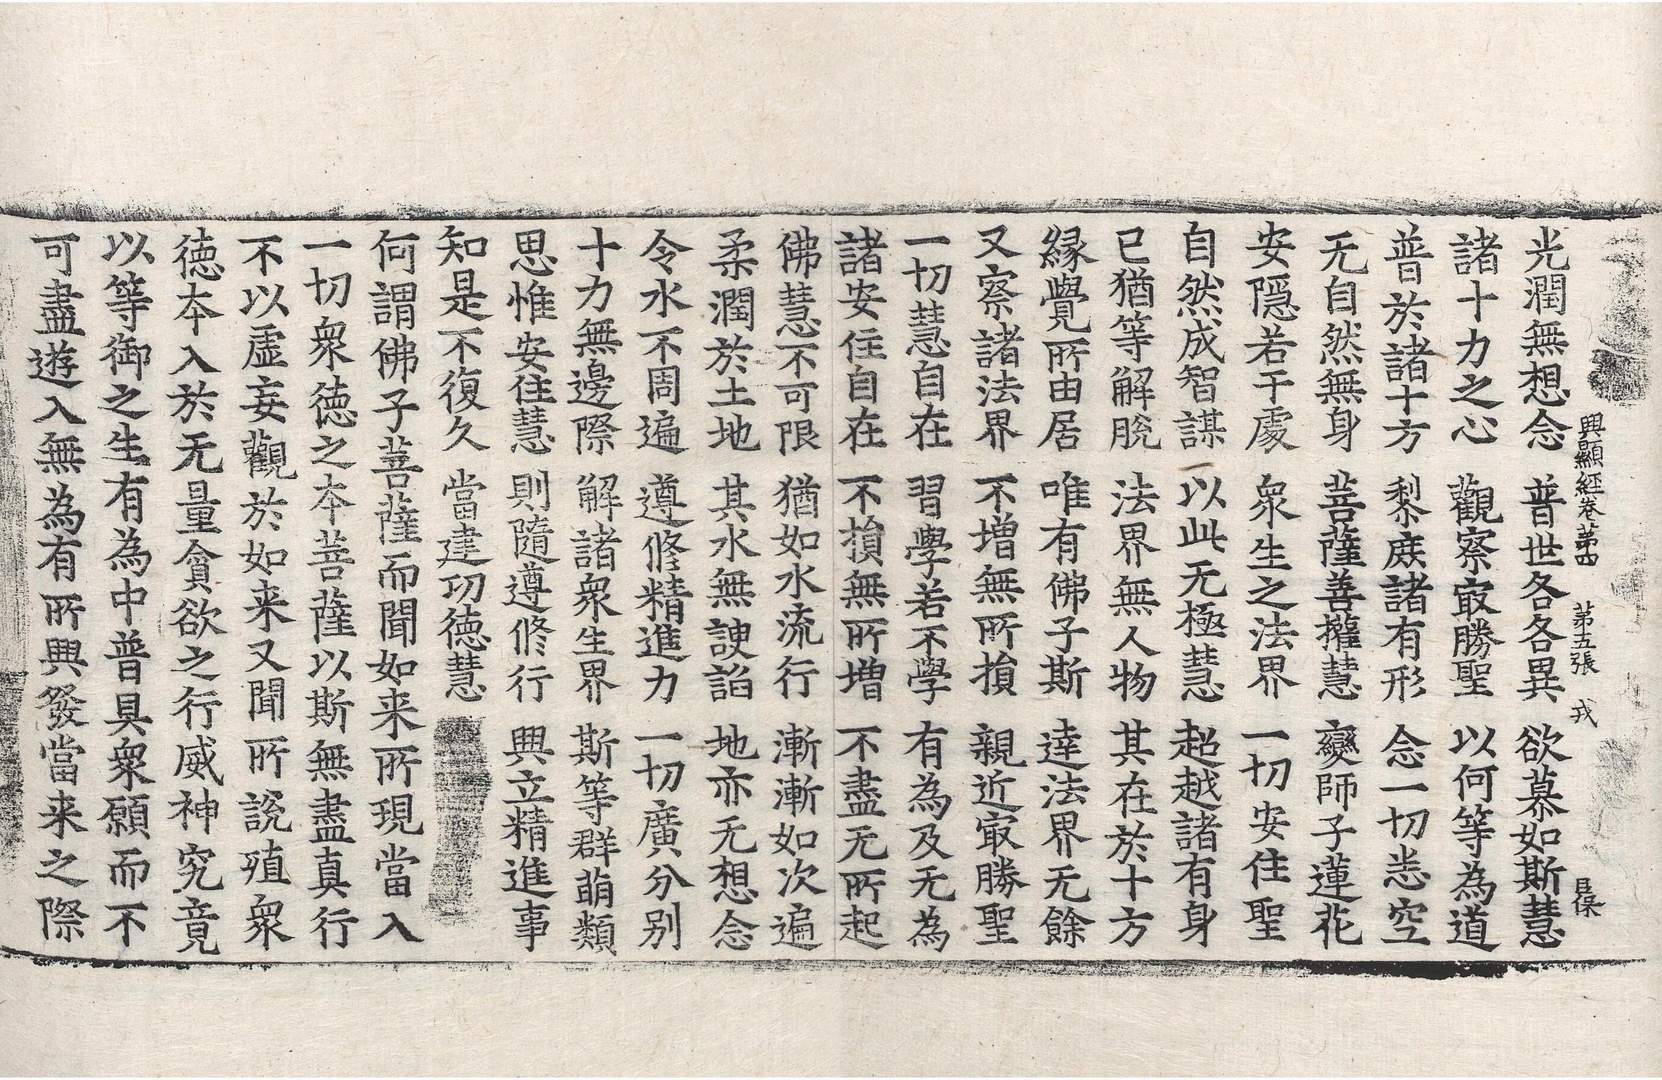 興顯經卷第四 第五張 戎 呂保
光潤無想念 普世各各異 欲慕如斯慧
諸十力之心 觀察㝡勝聖 以何等為道
普於諸十方 䅲庶諸有形 念一切悉空
无自然無身 菩薩善攉慧 奱師子蓮花
安隱若干處 衆生之法界 一切安住聖
自然成智謀 以此无極慧 超越諸有身
已猶等解脫 法界無人物 其在於十方
緣覺所由居 唯有佛子斯 達法界无餘
又察諸法界 不增無所損 親近㝡勝聖
一切慧自在 習學若不學 有為及无為
諸安住自在 不損無所增 不盡无所起
佛慧不可限 猶如水流行 漸漸如次遍
柔潤於土地 其水無諛諂 地亦无想念
令水不周遍 遵修精進力 一切廣分别
十力無邊際 解諸衆生界 斯等群萌類
思惟安住慧 則隨遵修行 興立精進事
知是不復久 當建功德慧
何謂佛子菩薩而聞如来所現當入
一切衆德之本菩薩以斯無盡真行
不以虛妄觀於如来又聞所說殖衆
德本入於无量貪欲之行威神究竟
以等御之生有為中普具衆願而不
可盡遊入無為有所興發當来之際